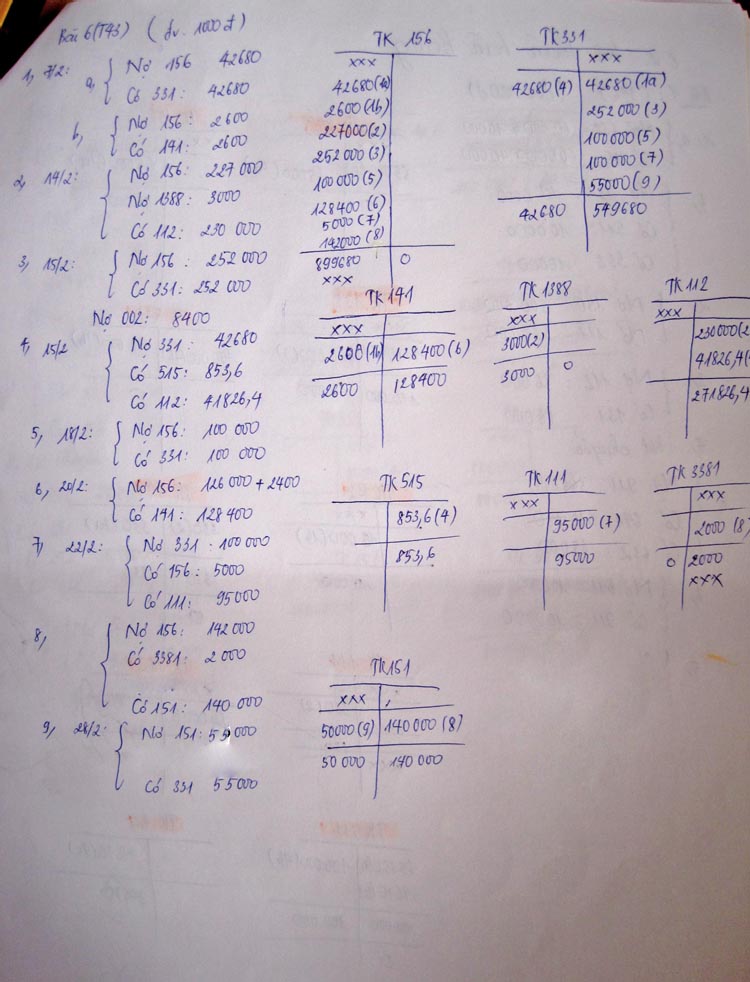 Bài 6 (T43) (đv: 1000đ)
1, 7/2: a, Nợ 156 42680
Có 331: 42680
b, Nợ 156: 2600
Có 141: 2600
2, 14/2: Nợ 156: 227 000
Nợ 1388: 3000
Có 112: 230 000
3, 15/2: Nợ 156: 252 000
Có 331: 252 000
Nợ 002: 8400
4, 15/2 Nợ 331: 42680
Có 515: 853,6
Có 112: 41826,4
5, 18/2: Nợ 156: 100 000
Có 331: 100 000
6, 20/2: Nợ 156: 126 000 + 2400
Có 141: 128 400
7, 22/2: Nợ 331: 100 000
Có 156: 5000
Có 111: 95000
8, Nợ 156: 142 000
Có 3381: 2 000
Có 151: 140 000
9, 28/2: Nợ 151: 55000
Có 331 55000
TK 156
xxx
42680 (1a)
2600 (1b)
227000 (2)
252 000 (3)
100 000 (5)
128400 (6)
5000 (7)
142000 (8)
899680 0
xxx
TK 331
xxx
42680 (4) 42680 (1a)
252 000 (3)
100 000 (5)
100 000 (7)
55000 (9)
42680 549680
TK 141
xxx
2600 (1b) 128 400 (6)
2600 128400
TK 1388
xxx
3000 (2)
3000 0
TK 112
xxx
230 000 (2
41826,4 (
271826,4
TK 515
853,6 (4)
853,6
TK 111
xxx
95000 (7)
95000
TK 3381
xxx
2000 (8)
0 2000
xxx
TK 151
xxx
50000 (9) 140 000 (8)
50 000 140 000